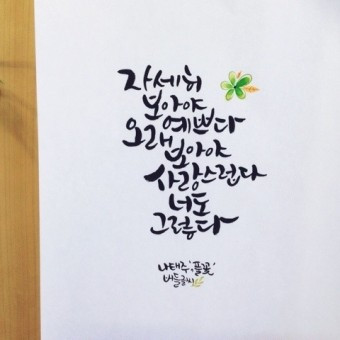 자세히
보아야
예쁘다
오래
보아야
사랑스럽다
너도
그렇다
나태주, '풀꽃'
버들글씨